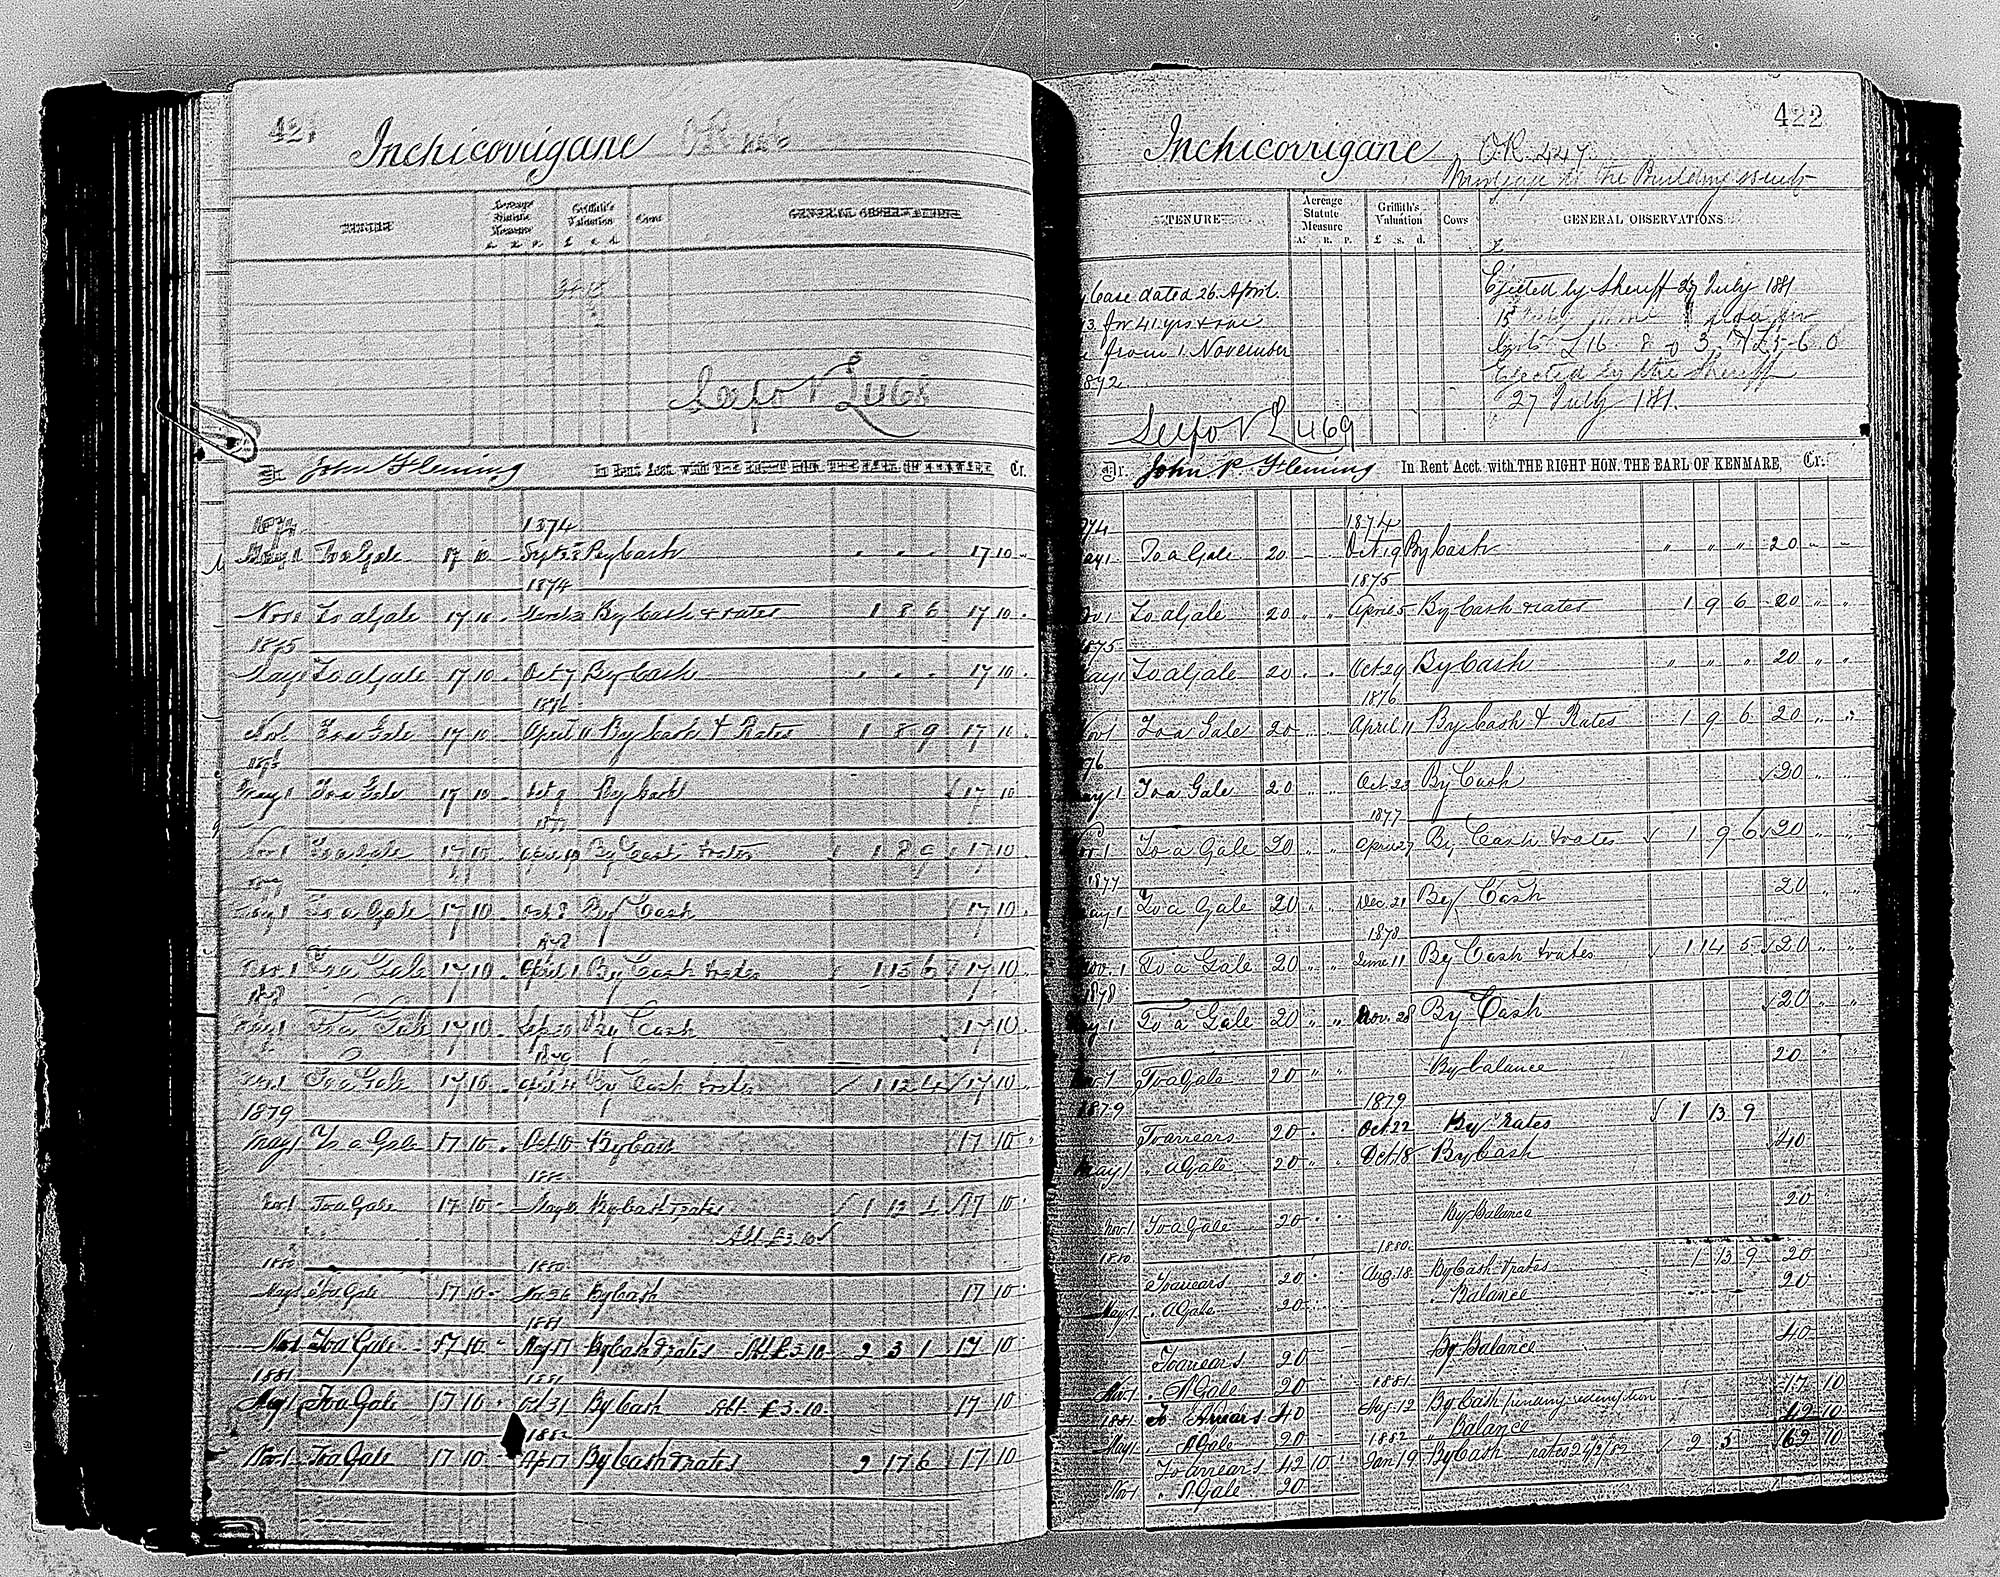 421
Inchicorrigane O.R. 446
TENURE Acreage Statute Measure Griffith's Valuation Cows GENERAL OBSERVATIONS
A. R. P. £ s. d.
See fo V L 468
Dr. John Fleming In Rent Acct. with THE RIGHT HON. THE EARL OF KENMARE, Cr.
1874 1874
May 1 To a Gale 17 10 - Sept 23 By Cash " " " 17 10 -
1874
Nov 1 To a Gale 17 10 - By Cash & rates 1 8 6 17 10 -
1875
May 1 To a Gale 17 10 - Oct 7 By Cash " " " 17 10 -
1876
Nov 1 To a Gale 17 10 - April 11 By Cash & Rates 1 8 9 17 10 -
1876
May 1 To a Gale 17 10 - Oct 9 By Cash 17 10
1877
Nov 1 To a Gale 17 10 - April By Cash & rates 1 8 9 17 10
1877
May 1 To a Gale 17 10 - Oct By Cash 17 10
1878
Nov. 1 To a Gale 17 10 - April 1 By Cash & rates 1 15 6 17 10
1878
May 1 To a Gale 17 10 - Sep 20 By Cash 17 10
1879
Nov. 1 To a Gale 17 10 - April 4 By Cash & rates 1 12 4 17 10
1879
May 1 To a Gale 17 10 - Oct 10 By Cash 17 10
1880
Nov 1 To a Gale 17 10 - May By Cash & rates 1 12 1 17 10
Abt £3.10
1880 1880
May 1 To a Gale 17 10 - Nov 26 By Cash 17 10
1881
Nov 1 To a Gale 17 10 - May 17 By Cash & rates Abt £3.10 2 3 1 17 10
1881 1881
May 1 To a Gale 17 10 - Oct 31 By Cash Abt £3.10 17 10
1882
Nov 1 To a Gale 17 10 - Ap 17 By Cash & rates 2 17 6 17 10
422
Inchicorrigane O.R. 447
Mortgage to the Building
TENURE Acreage Statute Measure Griffith's Valuation Cows GENERAL OBSERVATIONS
A. R. P. £ s. d.
Lease dated 26 April Ejected by Sheriff 27 July 1881
3 for 41 yrs &
from 1 November Costs £16 8 3
1872 Ejected by the Sheriff
27 July 1881.
See fo V L 469
Dr. John P. Fleming In Rent Acct. with THE RIGHT HON. THE EARL OF KENMARE, Cr.
1874 1874
May 1 To a Gale 20 - - Oct 19 By Cash " " " 20 - -
1875
Nov 1 To a Gale 20 " " April 5 By Cash & rates 1 9 6 20 " "
1875
May 1 To a Gale 20 " " Oct 29 By Cash " " " 20 " "
1876
Nov 1 To a Gale 20 " " April 11 By Cash & Rates 1 9 6 20 " "
1876
May 1 To a Gale 20 " " Oct 23 By Cash 20 " "
1877
Nov. 1 To a Gale 20 " " April 27 By Cash & rates 1 9 6 20 " "
1877
May 1 To a Gale 20 " " Dec. 21 By Cash 20 " "
1878
Nov. 1 To a Gale 20 " " June 11 By Cash & rates 1 14 5 20 " "
1878
May 1 To a Gale 20 " " Nov. 28 By Cash 20 " "
Nov 1 To a Gale 20 " " By balance 20 " "
1879 1879
To arrears 20 Oct 22 By rates 1 13 9
May 1 " a Gale 20 " " Oct 18 By Cash 40
Nov 1 To a Gale 20 By Balance 20
1880 1880
To arrears 20 Aug. 18 By Cash & rates 1 13 9 20
May 1 " a Gale 20 " Balance 20
To arrears 20 By Balance 40
Nov 1 " A Gale 20 1881
1881 To Arrears 40 Aug. 12 By Cash pending redemption 17 10
May 1 " A Gale 20 1882 " Balance 42 10
To arrears 42 10 Jan 19 By Cash rates 2 3 62 10
Nov 1 " A Gale 20